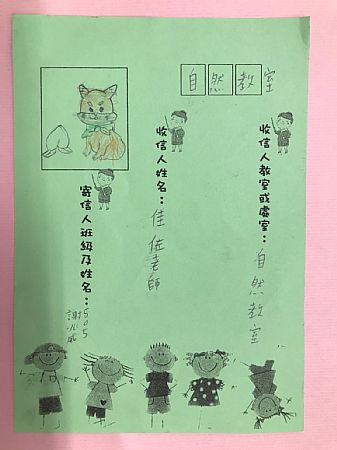 自然教室
收信人教室或處室：自然教室
收信人姓名：佳佐老師
寄信人班級及姓名：505
謝